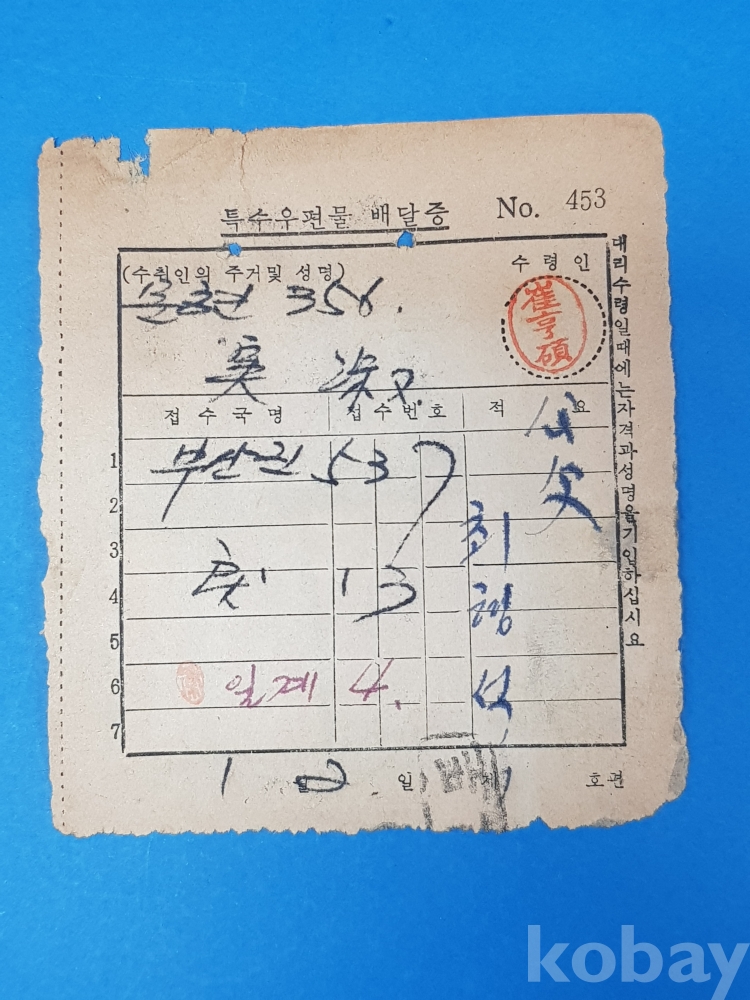 특수우편물 배달증 No. 453
(수취인의 주거및 성명) 수령인
문현 356.
崔亨碩
접수국명 접수번호 적 요
1 부산진 537
2
3
4 13
5
6 일계 4.
7
최
형
석
1 월 2 일 제 호편
대리수령일때에는자격과성명을기입하십시요
kobay